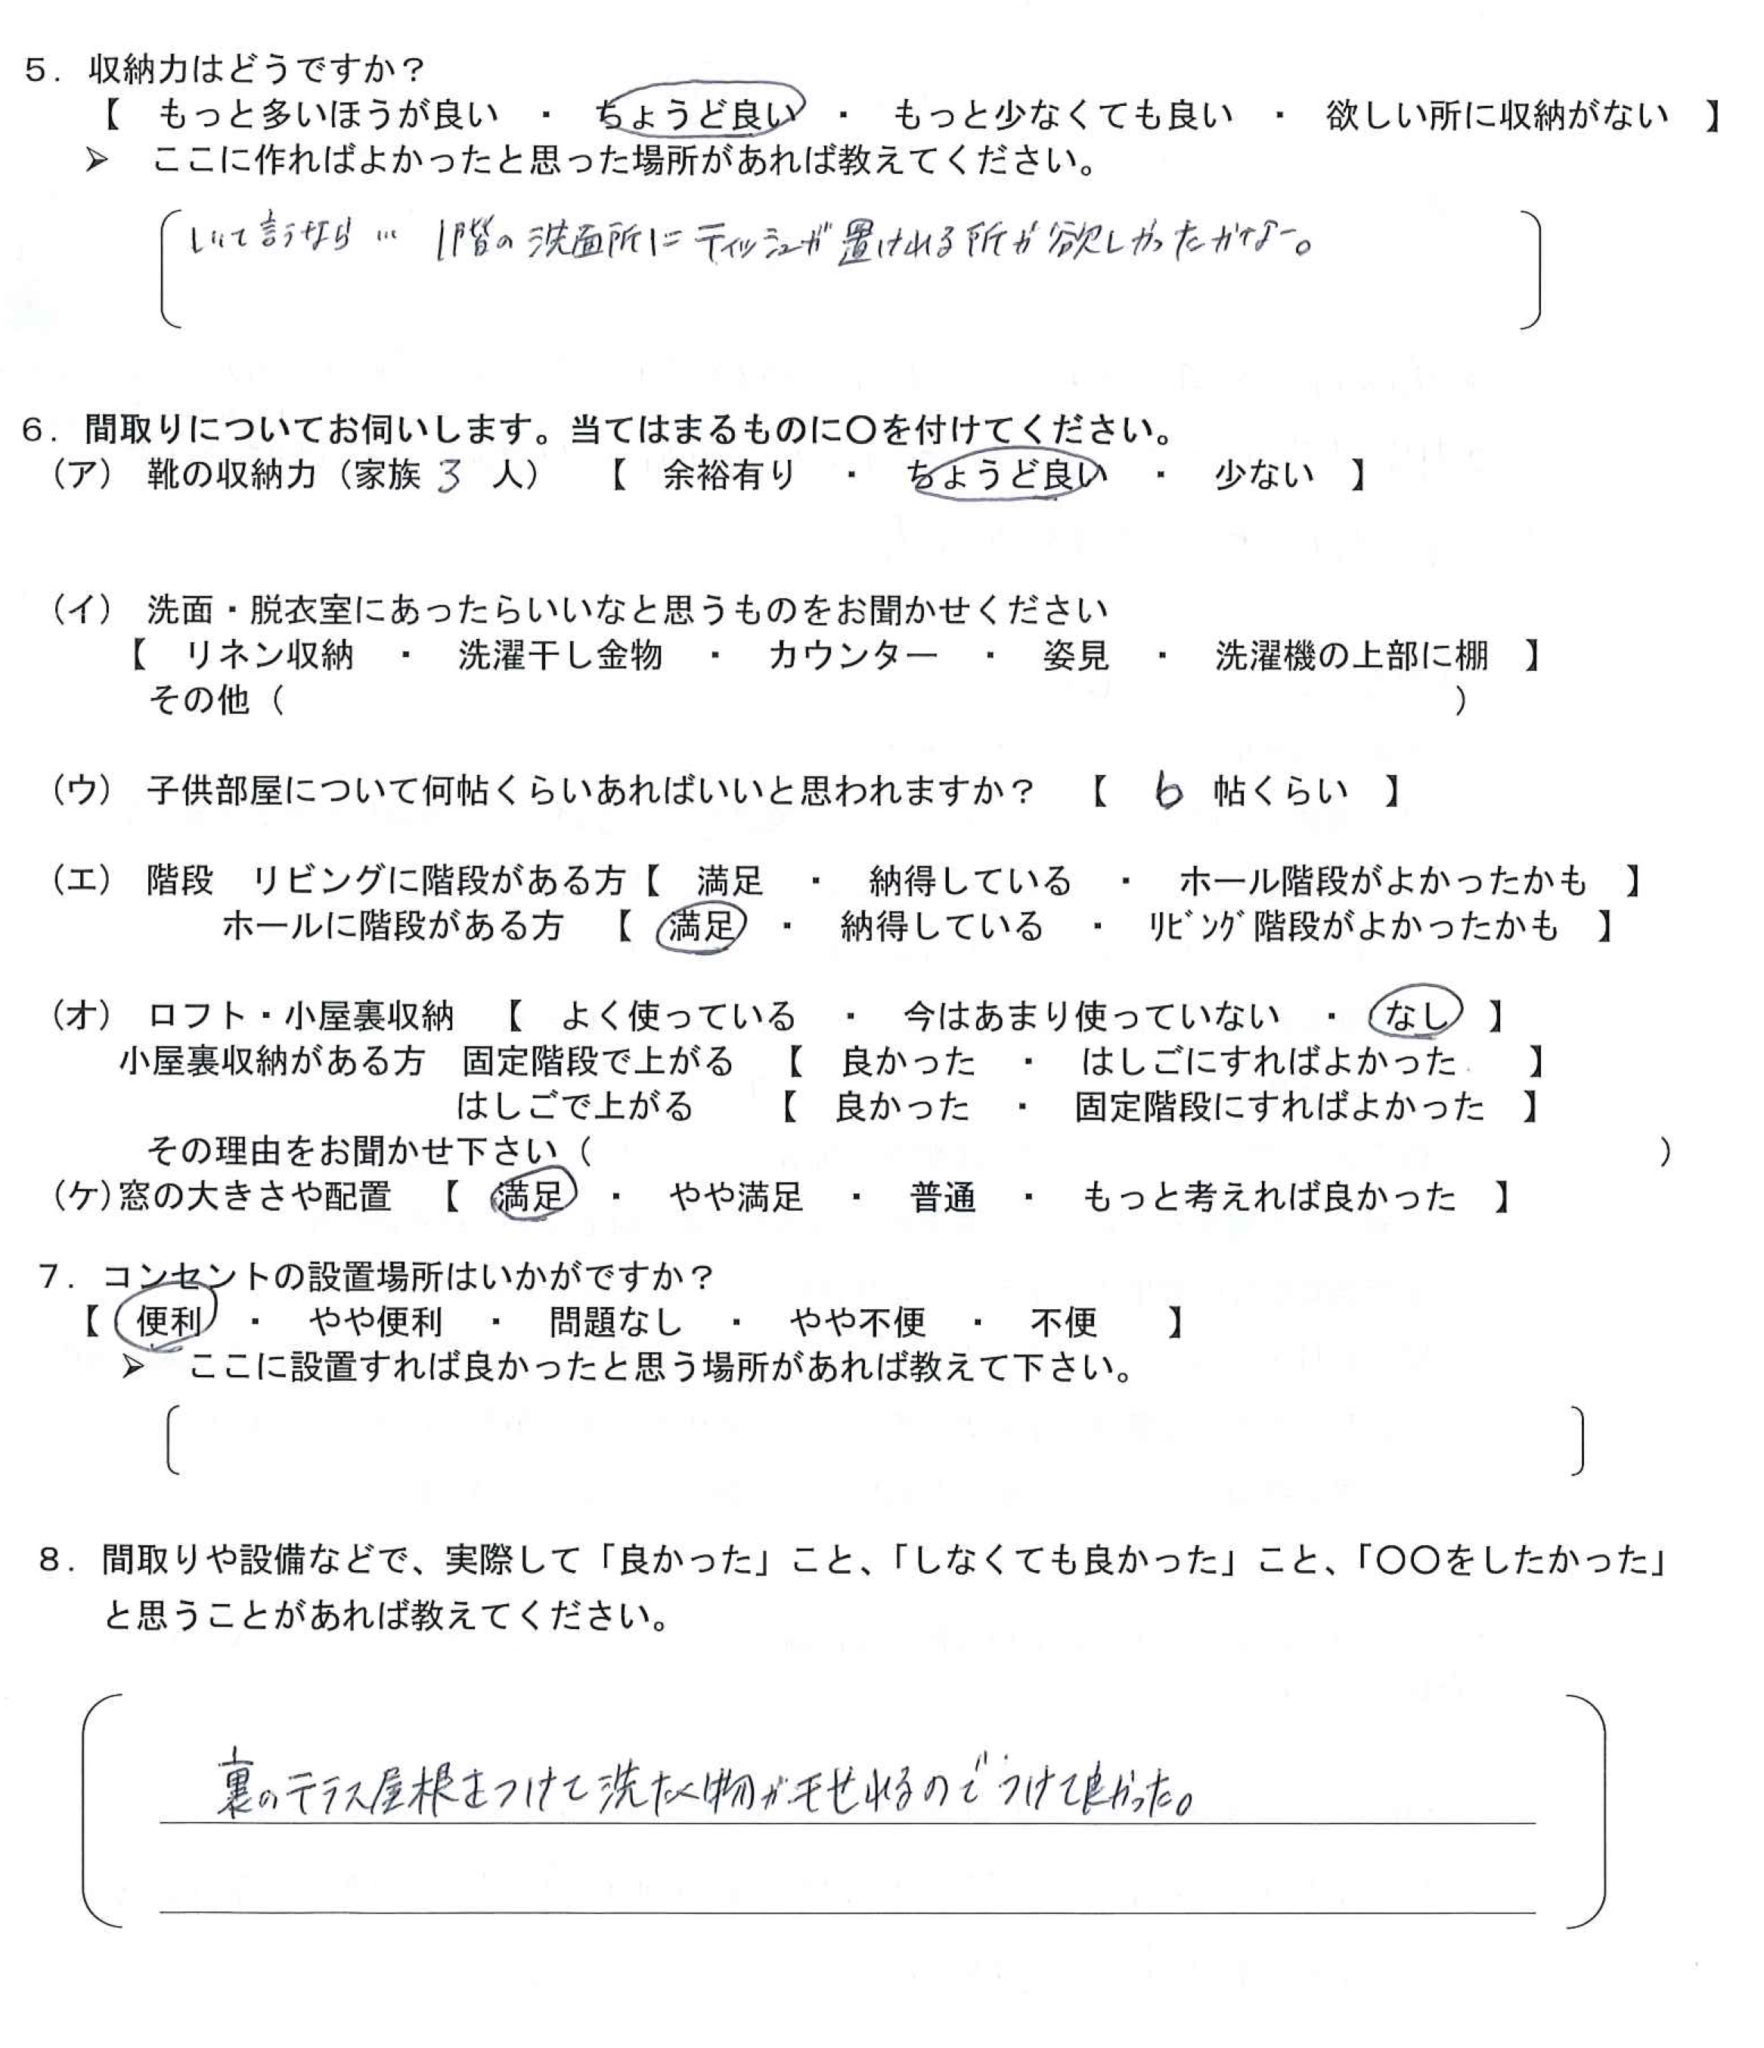 ５．収納力はどうですか？
【　もっと多いほうが良い　・　ちょうど良い　・　もっと少なくても良い　・　欲しい所に収納がない　】
➢　ここに作ればよかったと思った場所があれば教えてください。
しいて言うなら… 1階の洗面所にティッシュが置けれる所が欲しかったかなー。
６．間取りについてお伺いします。当てはまるものに〇を付けてください。
（ア）　靴の収納力（家族 3 人）　【　余裕有り　・　ちょうど良い　・　少ない　】
（イ）　洗面・脱衣室にあったらいいなと思うものをお聞かせください
【　リネン収納　・　洗濯干し金物　・　カウンター　・　姿見　・　洗濯機の上部に棚　】
その他（　　　　　　　　　　）
（ウ）　子供部屋について何帖くらいあればいいと思われますか？　【　6　帖くらい　】
（エ）　階段　リビングに階段がある方【　満足　・　納得している　・　ホール階段がよかったかも　】
ホールに階段がある方　【　満足　・　納得している　・　ﾘﾋﾞﾝｸﾞ階段がよかったかも　】
（オ）　ロフト・小屋裏収納　【　よく使っている　・　今はあまり使っていない　・　なし　】
小屋裏収納がある方　固定階段で上がる　【　良かった　・　はしごにすればよかった　】
はしごで上がる　【　良かった　・　固定階段にすればよかった　】
その理由をお聞かせ下さい（　　　　　　　　　　）
（ケ）窓の大きさや配置　【　満足　・　やや満足　・　普通　・　もっと考えれば良かった　】
７．コンセントの設置場所はいかがですか？
【　便利　・　やや便利　・　問題なし　・　やや不便　・　不便　】
➢　ここに設置すれば良かったと思う場所があれば教えて下さい。
８．間取りや設備などで、実際して「良かった」こと、「しなくても良かった」こと、「〇〇をしたかった」
と思うことがあれば教えてください。
裏のテラス屋根をつけて洗たく物が干せれるのでつけて良かった。